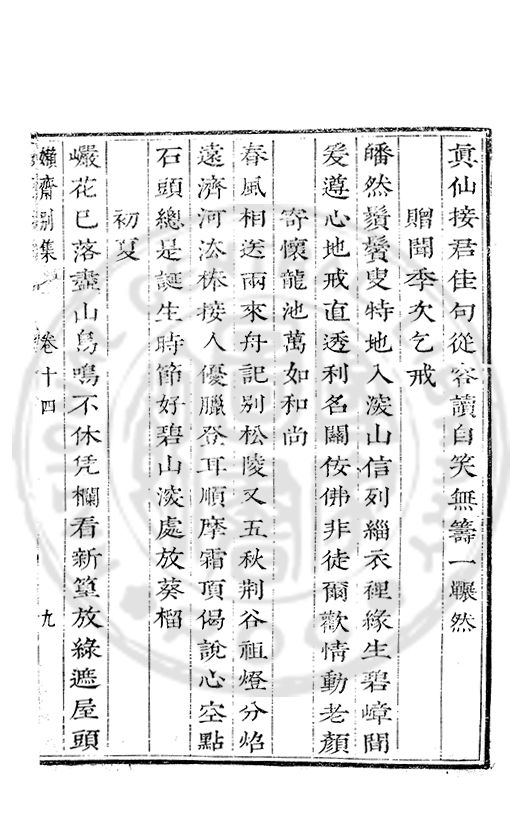 真仙接君佳句從容讀自笑無籌一冁然
贈聞季次乞戒
皤然鬚鬢叟特地入深山信列緇衣裡緣生碧嶂間
爰遵心地戒直透利名關佞佛非徒爾歡情動老顏
寄懷龍池萬如和尚
春風相送兩來舟記別松陵又五秋荆谷祖燈分焰
遠濟河法棒接人優臘登耳順摩霜頂偈說心空點
石頭總是誕生時節好碧山深處放葵榴
初夏
巖花已落盡山鳥鳴不休凭欄看新篁放綠遮屋頭
嬾齋別集 卷十四 九